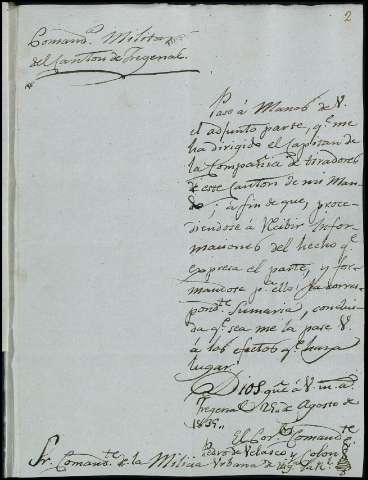 2
Comand.ª Militar
del Canton de Fregenal.
Paso á Manos de V.
el adjunto parte, q.e me
ha dirigido el Capitan de
la Compañia de tiradores
de este Canton de mi Man
do; á fin de que, proce
diendose á recibir infor
maciones del hecho q.e
expresa el parte, y for
mandose p.r ello la corres
pond.te Sumaria, conclui
da q.e sea me la pase V.
á los efectos q.e haya
lugar.
Dios gu.e á V. m. a.
Fregenal 28 de Agosto de
1835.
El Cor.l Comand.te
Pedro de Velasco y Colon
Sr. Comand.te de la Milicia Urbana de